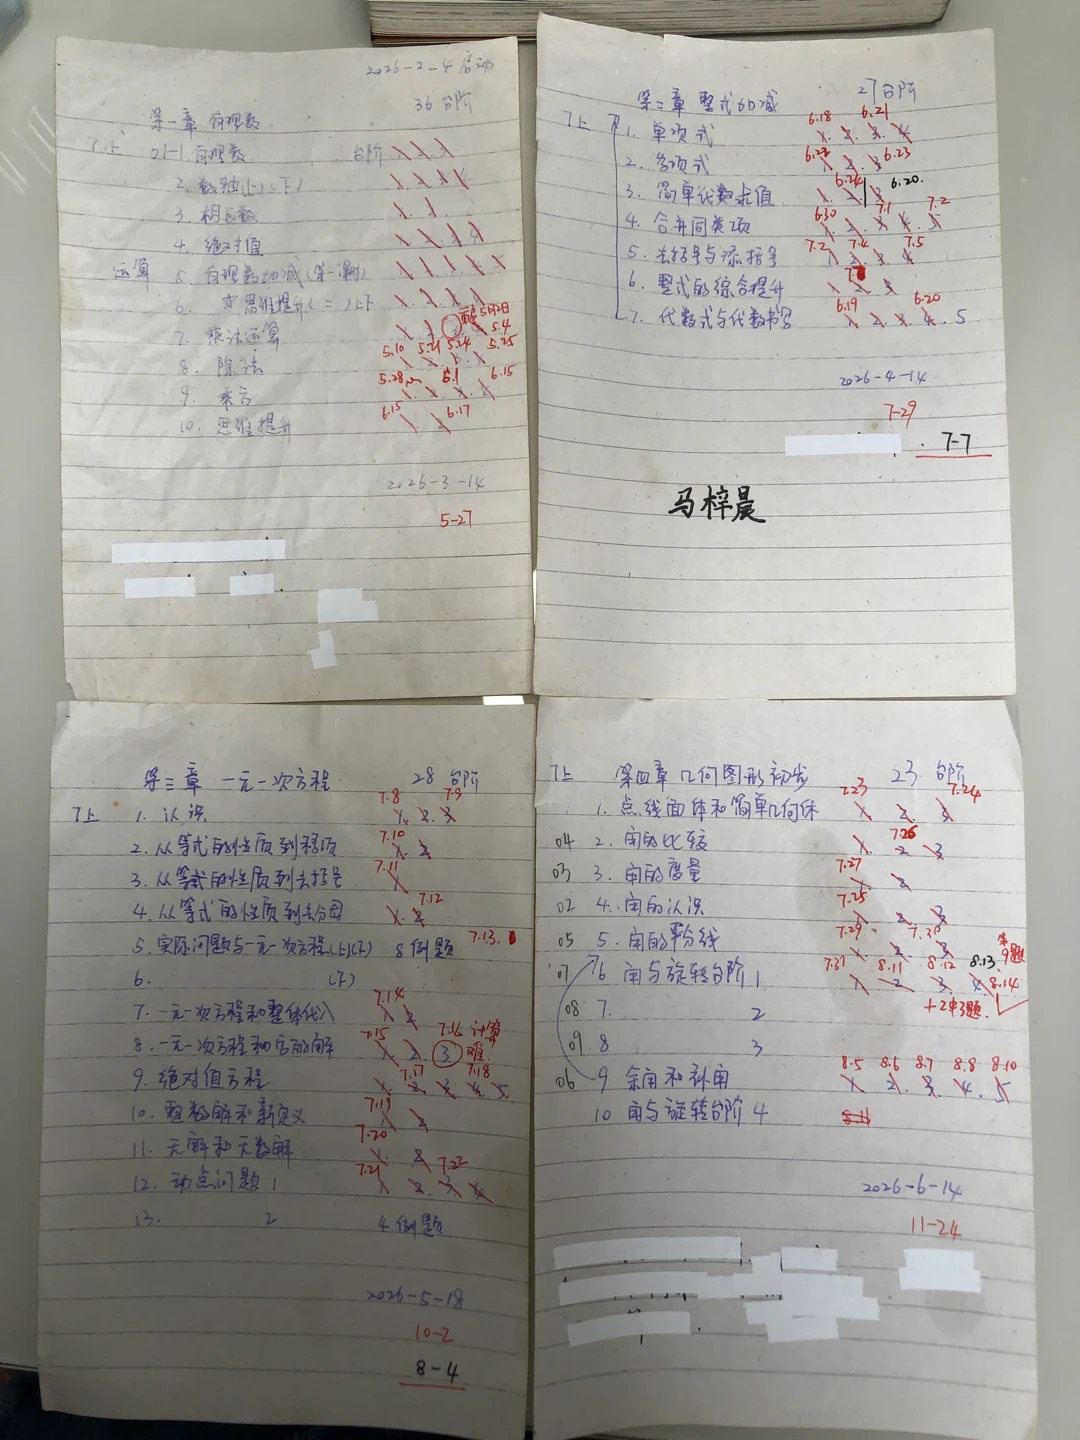 2026-2-4启动
36台阶
第一章 有理数
7上 01-1.有理数 台阶
2.数轴(上)(下)
3.相反数
4.绝对值
运算 5.有理数加减(第一课时)
6. 思维提升(二)上下
5月2日
7.乘法运算 5.4
5.10 5.21 5.24 5.25
8.除法
5.28 6.1 6.15
9.乘方
6.15 6.17
10.思维提升
2026-3-14
5-27
第二章 整式加减 27台阶
6.18 6.21
7上 1.单项式 1. 2. 3. 4
6.22 6.23
2.多项式 1 2 3
6.24 6.20.
3.简单代数求值 1. 2 3
6.30 7.1 7.2
4.合并同类项 1. 2 3. 4. 5
7.2 7.4 7.5
5.去括号与添括号 1 2 3 4
6.整式的综合提升 1 2 3
6.19 6.20
7.代数式与代数书写 1 2 3 4. 5
2026-4-14
7-29
7-7
马梓晨
第三章 一元一次方程 28台阶
7.8 7.9
7上 1.认识 1. 2. 3
7.10
2.从等式的性质到移项 1. 2
7.11
3.从等式的性质到去括号 1
7.12
4.从等式的性质到去分母 1. 2
5.实际问题与一元一次方程(上)(下) 8例题 7.13.
6. (下)
7.14
7.一元一次方程和整体代入 1 2
7.15 7.16 计算难
8.一元一次方程和它的解 1. 2. 3
7.17 7.18
9.绝对值方程 1. 2. 3. 4. 5.
7.19
10.整数解和新定义 1 2
7.20
11.无解和无数解 1. 2
7.21 7.22
12.动点问题 1 1 2. 3. 4
13. 2 4例题
2026-5-18
10-2
8-4
7上 第四章 几何图形初步 23台阶
7.23 7.24
1.点线面体和简单几何体 1 2 3
7.26
04 2.角的比较 1. 2 3
7.27
03 3.角的度量 1 2
7.25
02 4.角的认识 1 2. 3
7.29 7.30
05 5.角的平分线 1 2 3 第9题
7.31 8.11 8.12 8.13.
07 6 角与旋转台阶 1 1 2 3. 4 8.14
08 7. 2 +2中3题.
09. 8 3
8.5 8.6 8.7 8.8 8.10
06 9 余角和补角 1 2 3. 4. 5
10 角与旋转台阶 4
2026-6-14
11-24